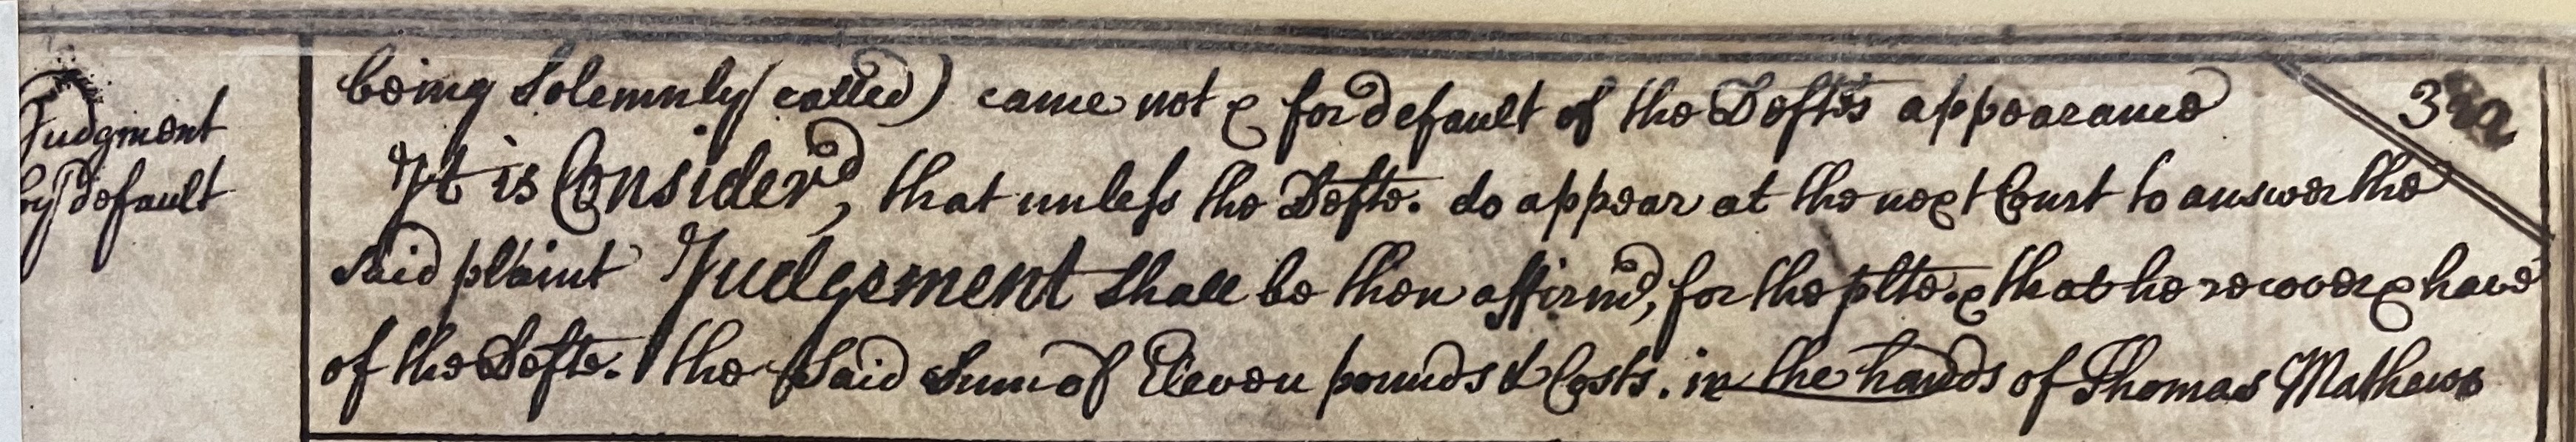 being Solemnly (called) came not & for default of the Defts appearance
Judgment
by default
It is Consider'd, that unless the Defte. do appear at the next Court to answer the
said plaint Judgement shall be then affirm'd, for the plte. & that he recover & have
of the Defte. the Said Sum of Eleven pounds & Costs. in the hands of Thomas Mathews